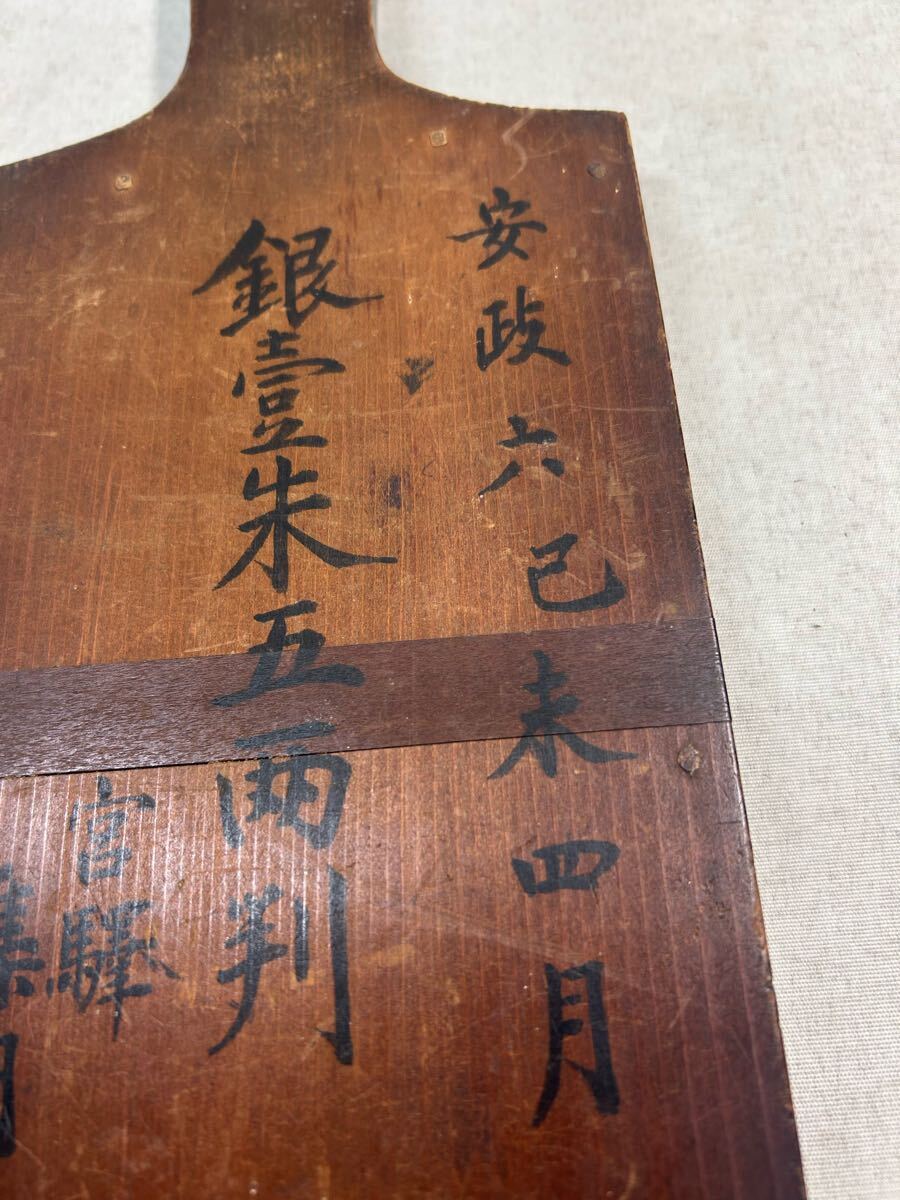 安政六己未四月
銀壹朱五兩判
宮驛